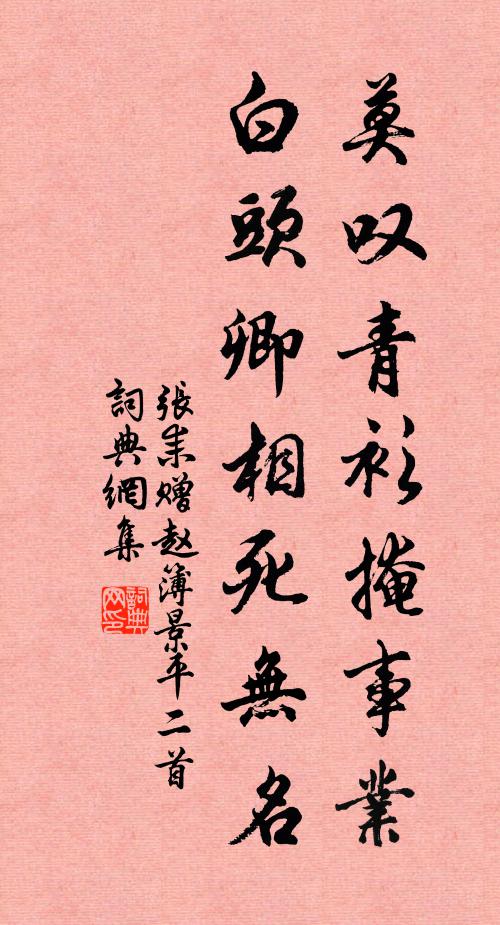 莫叹青衫掩事業
白頭卿相死無名
張耒赠赵簿景平二首
詞典網集
詞典网印